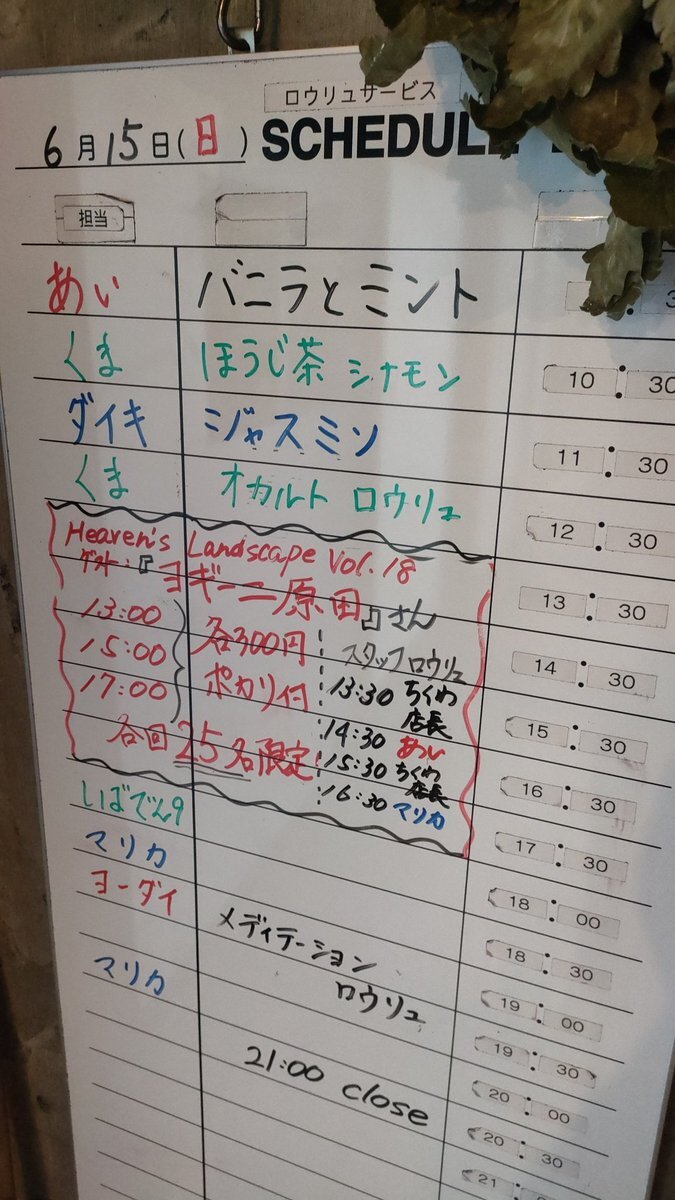 ロウリュサービス
6月15日(日) SCHEDUL
担当
あい バニラとミント
くま ほうじ茶 シナモン 10:30
ダイキ ジャスミン 11:30
くま オカルト ロウリュ 12:30
Heaven's Landscape Vol.18
ゲスト:『ヨギーニ原田』さん 13:30
13:00 各300円 スタッフロウリュ 14:30
15:00 ポカリ付 13:30 ちくわ店長 15:30
17:00 14:30 あい
各回25名限定 15:30 ちくわ店長 16:30
16:30 マリカ 17:30
いばでん9 18:00
マリカ 18:30
ヨーダイ メディテーション 19:00
ロウリュ 19:30
マリカ 20:00
21:00 close 20:30
21: